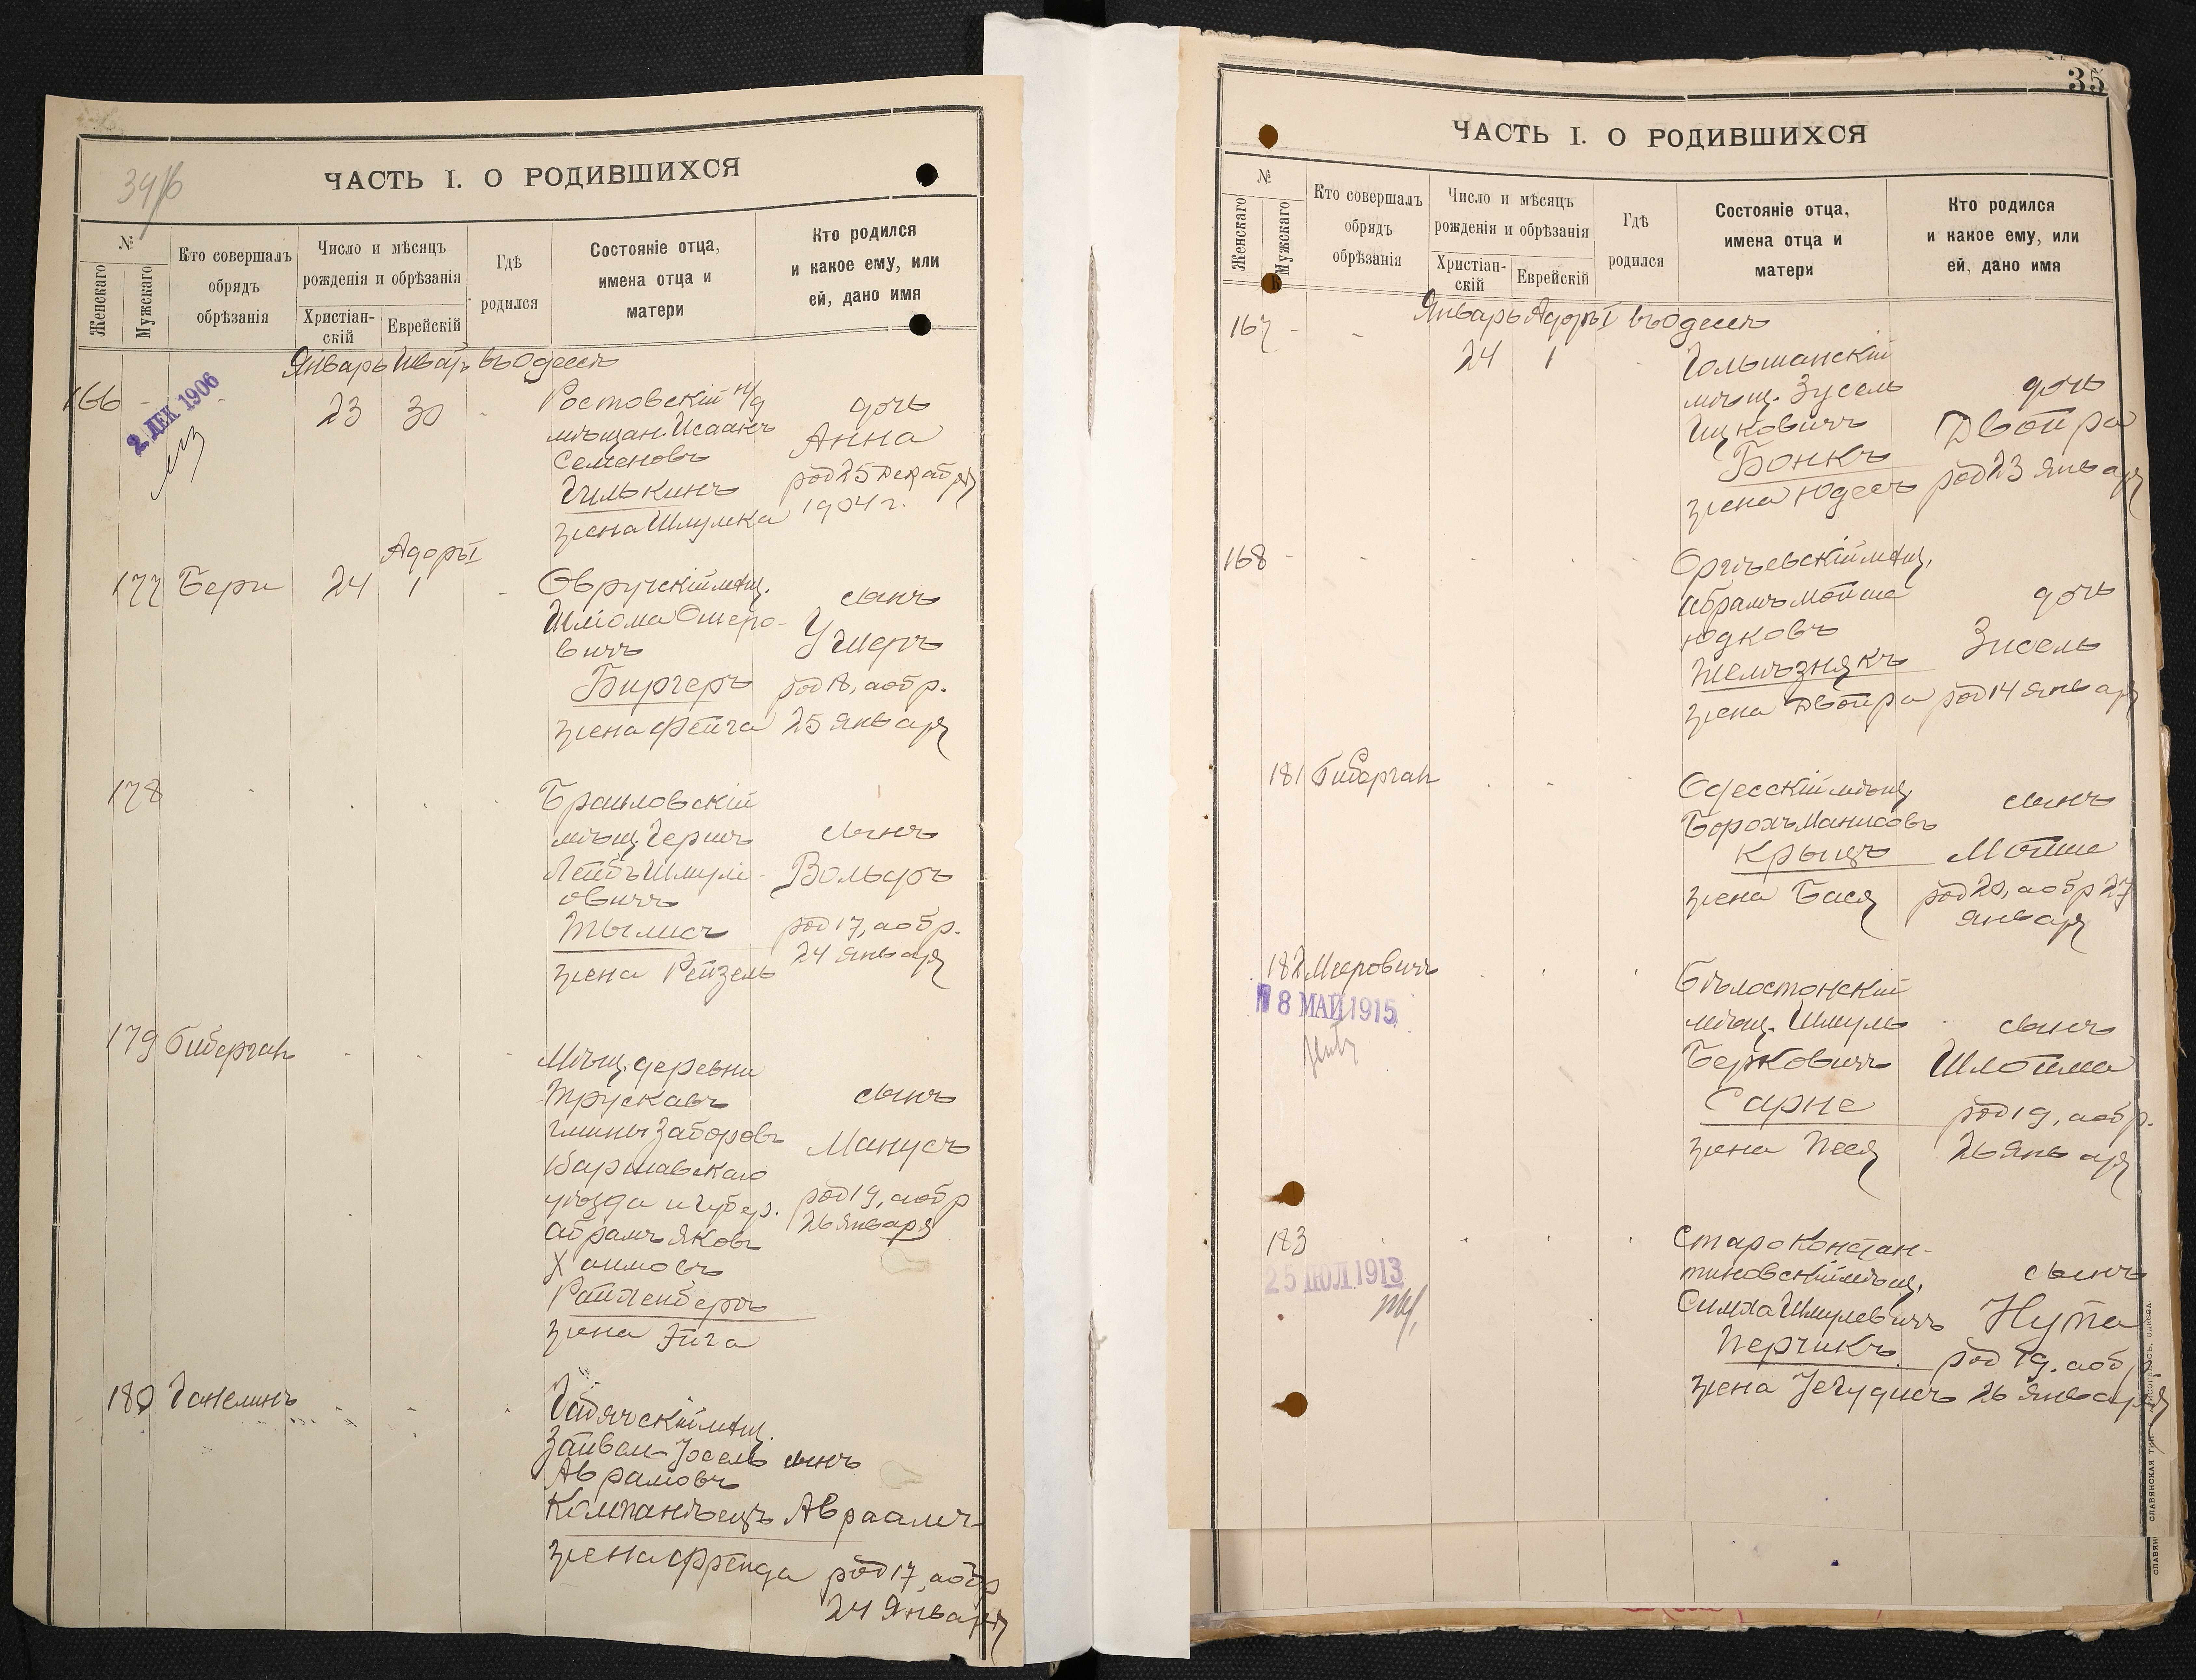 34/б
ЧАСТЬ I. О РОДИВШИХСЯ
№
Женскаго
Мужскаго
Кто совершалъ
обрядъ
обрѣзанія
Число и мѣсяцъ
рожденія и обрѣзанія
Христіан-
скій
Еврейскій
Гдѣ
родился
Состояніе отца,
имена отца и
матери
Кто родился
и какое ему, или
ей, дано имя
Январь Шват въ Одессѣ
166 - - 23 30 - Ростовскій н/д
2. ДЕК 1906
мѣщан. Исаакъ
Семеновъ
Гилькинъ
жена Шлумка
дочь
Анна
род 25 Декабря
1904 г.
Адоръ I
177 Бери 24 1 - Овручскій мѣщ.
Шліома Ошеро-
вичъ
Биргеръ
жена Фейга
сынъ
Ушеръ
род 18, а обр.
25 Января
178
Браиловскій
мѣщ. Гершъ
Лейбъ Шмули-
овичъ
Тылисъ
жена Рейзель
сынъ
Вольфъ
род 17, а обр.
24 Января
179 Биберган
Мѣщ. деревни
Трускавъ
гмины Заборовъ
Варшавскаго
уѣзда и губер.
Абрамъ Яковъ
Хаимовъ
Райхенбергъ
жена Эйга
сынъ
Манусъ
род 19, а обр
26 Января
180 Ганелинъ
Гадячскій мѣщ.
Зайвел-Іосель
Аврамовъ
Компанѣецъ
жена Фрейда
сынъ
Авраамъ
род 17, а обр
24 Января
35
ЧАСТЬ I. О РОДИВШИХСЯ
№
Женскаго
Мужскаго
Кто совершалъ
обрядъ
обрѣзанія
Число и мѣсяцъ
рожденія и обрѣзанія
Христіан-
скій
Еврейскій
Гдѣ
родился
Состояніе отца,
имена отца и
матери
Кто родился
и какое ему, или
ей, дано имя
Январь Адоръ I въ Одессѣ
167 - - 24 1 Гольшанскій
мѣщ. Зусель
Ицковичъ
Бонкъ
жена Юдесъ
дочь
Двойра
род 23 Января
168 - Оргѣевскій мѣщ.
Абрамъ Мойше
Юдковъ
Желѣзнякъ
жена Двойра
дочь
Зисель
род 14 Января
181 Биберган
Одесскій мѣщ.
Борохъ Манисовъ
Крыцъ
жена Бася
сынъ
Мойше
род 20, а обр 27
Января
182 Мееровичъ
18 МАЙ 1915
Бѣлостокскій
мѣщ. Шмуль
Берковичъ
Сарне
жена Песя
сынъ
Шлойма
род 19, а обр.
26 Января
183
25 ІЮЛ. 1913
Староконстан-
тиновскій мѣщ.
Симха Шмулевичъ
Перчикъ
жена Іегудисъ
сынъ
Нута
род 19, а обр
26 Января
СЛАВЯНСКАЯ ТИП.